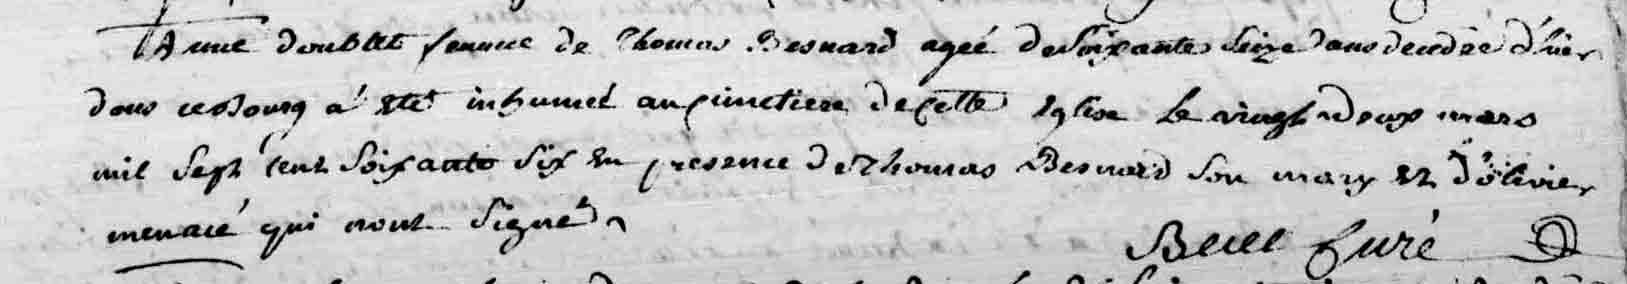 Anne doublet femme de Thomas Besnard ageé de Soixante Seize dans deudée d'hier
dans ce Bourg a été inhumeé au cimetiere de cette Eglise le vingt deux mars
mil Sept cent Soixante Six en presence de Thomas Besnard Son mary et d'olivier
menacé qui nont Signé
curé